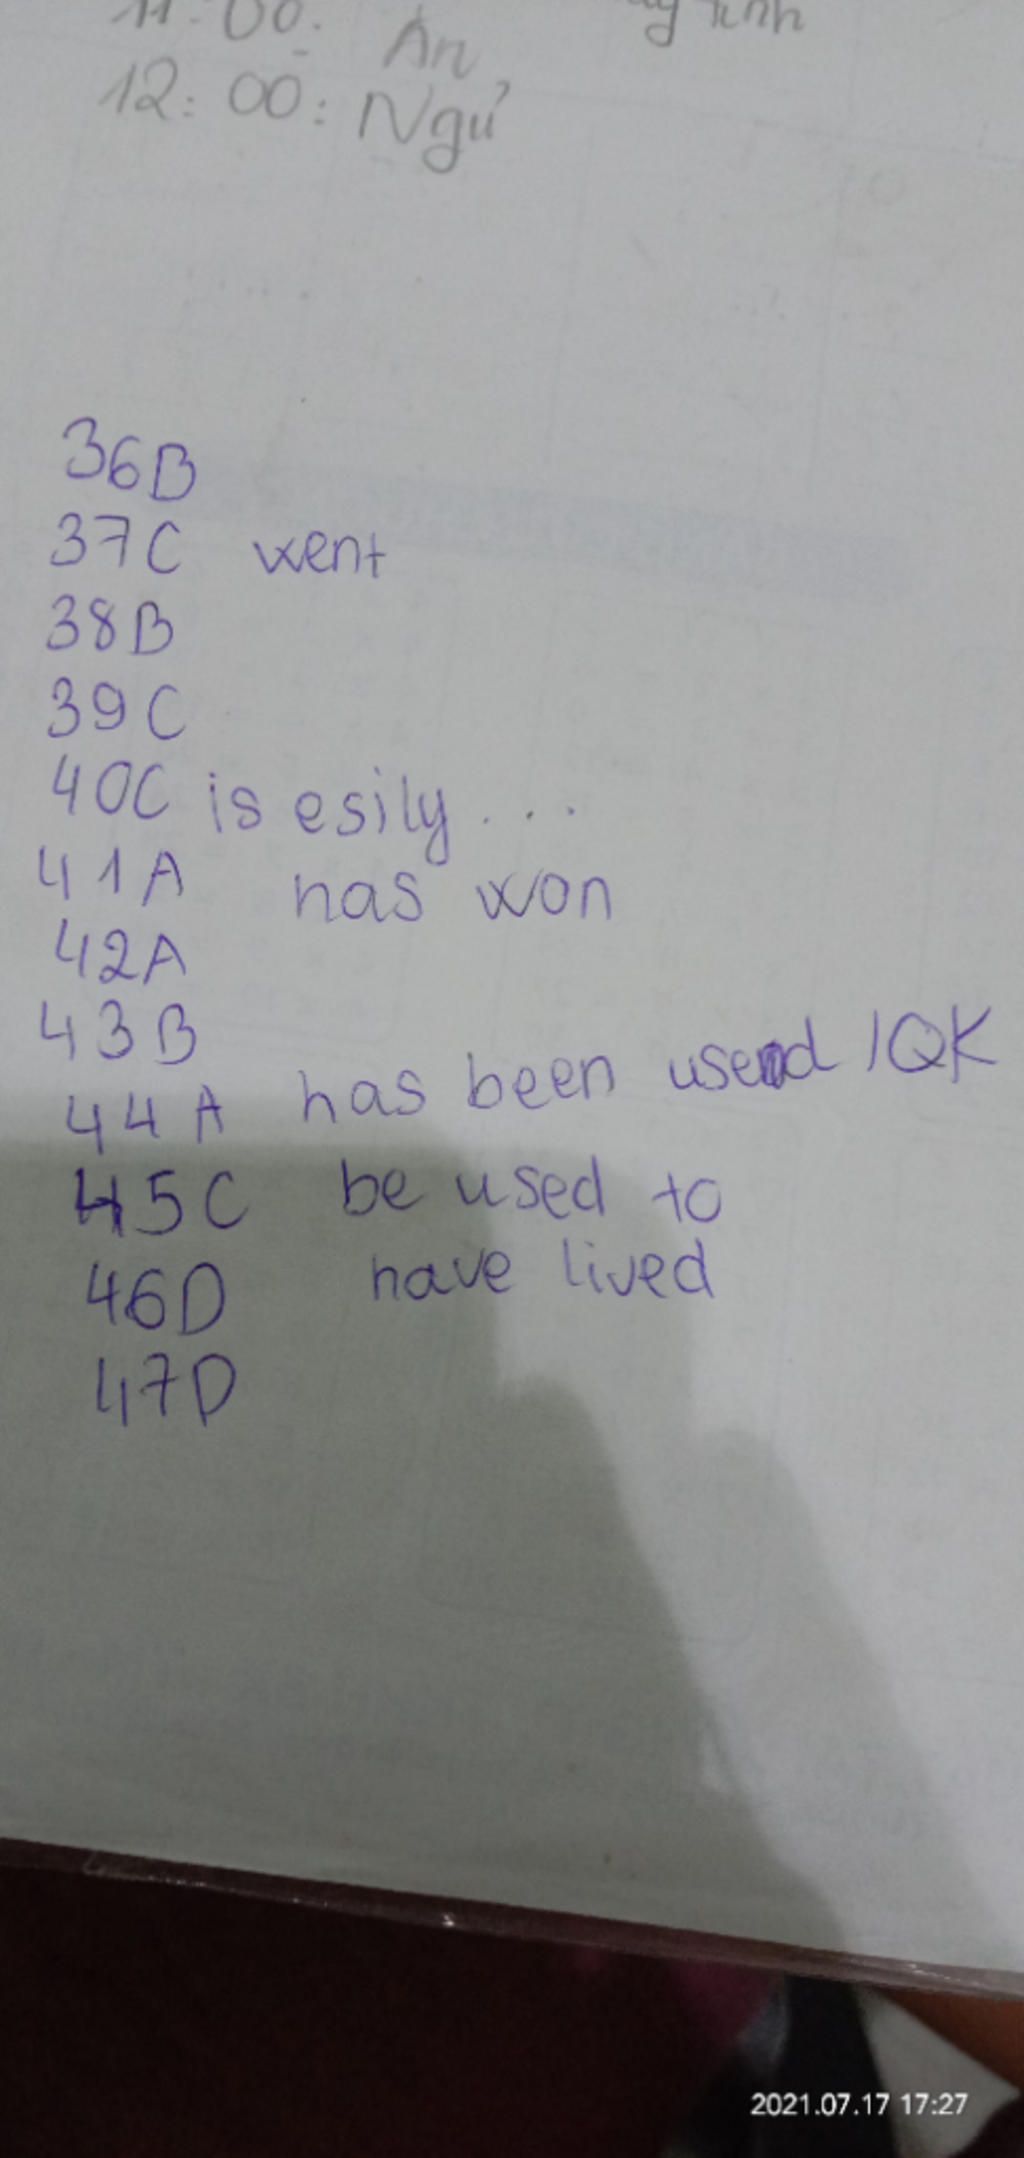 11:00: Ăn
12:00: Ngủ
36B
37C went
38B
39C
40C is esily ...
41A has won
42A
43B
44A has been used IQK
45C be used to
46D have lived
47D
2021.07.17 17:27